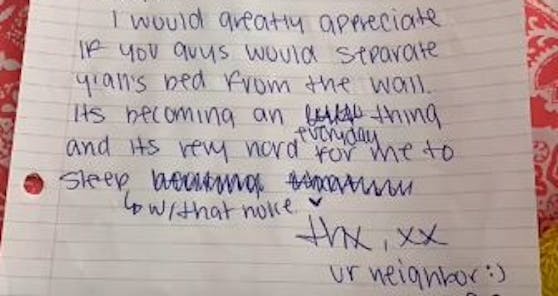 I would greatly appreciate
if you guys would separate
y'all's bed from the wall.
its becoming an everyday thing
and its very hard for me to
sleep
↳ w/that noise
thx, xx
ur neighbor :)